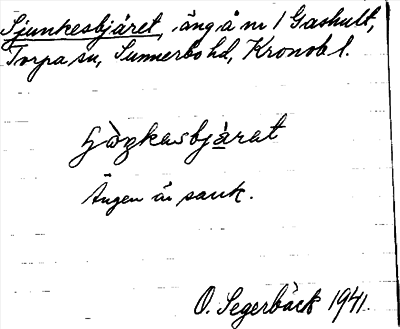 Sjunkesbjäret, äng å nr 1 Gashult,
Torpa sn, Sunnerbo hd, Kronob l.
Ängen är sank.
O. Segerbäck 1941.